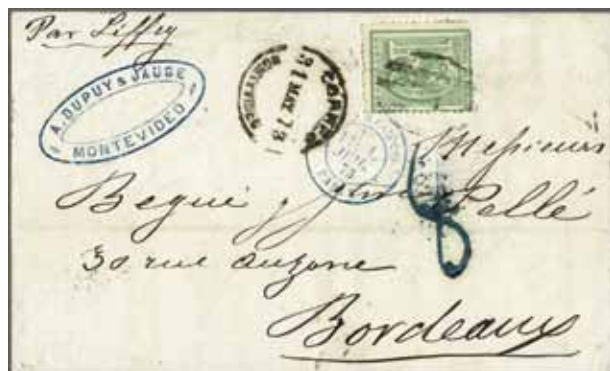 Par Liffey
A. DUPUY & JAUGE
MONTEVIDEO
CORREO
31 MAY. 73
MONTEVIDEO
Messieurs
Begué Pellé
30 rue
Bordeaux
8